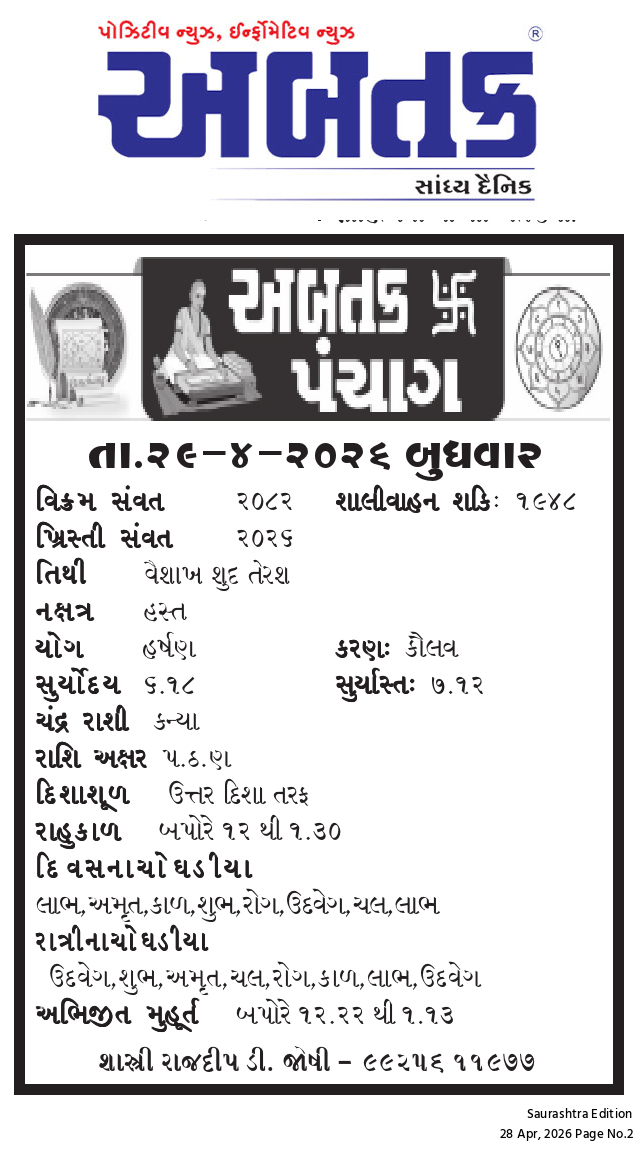 પોઝિટીવ ન્યુઝ, ઈન્ફોર્મેટિવ ન્યુઝ
અબતક ®
સાંધ્ય દૈનિક
અબતક 卐
પંચાગ
તા.૨૯-૪-૨૦૨૬ બુધવાર
વિક્રમ સંવત ૨૦૮૨ શાલીવાહન શકિ: ૧૯૪૮
ખ્રિસ્તી સંવત ૨૦૨૬
તિથી વૈશાખ શુદ તેરશ
નક્ષત્ર હસ્ત
યોગ હર્ષણ કરણ: કૌલવ
સુર્યોદય ૬.૧૮ સુર્યાસ્ત: ૭.૧૨
ચંદ્ર રાશી કન્યા
રાશિ અક્ષર પ.ઠ.ણ
દિશાશૂળ ઉત્તર દિશા તરફ
રાહુકાળ બપોરે ૧૨ થી ૧.૩૦
દિવસનાચોઘડીયા
લાભ,અમૃત,કાળ,શુભ,રોગ,ઉદવેગ,ચલ,લાભ
રાત્રીનાચોઘડીયા
ઉદવેગ,શુભ,અમૃત,ચલ,રોગ,કાળ,લાભ,ઉદવેગ
અભિજીત મુહૂર્ત બપોરે ૧૨.૨૨ થી ૧.૧૩
શાસ્ત્રી રાજદીપ ડી. જોષી - ૯૯૨૫૬ ૧૧૯૭૭
Saurashtra Edition
28 Apr, 2026 Page No.2